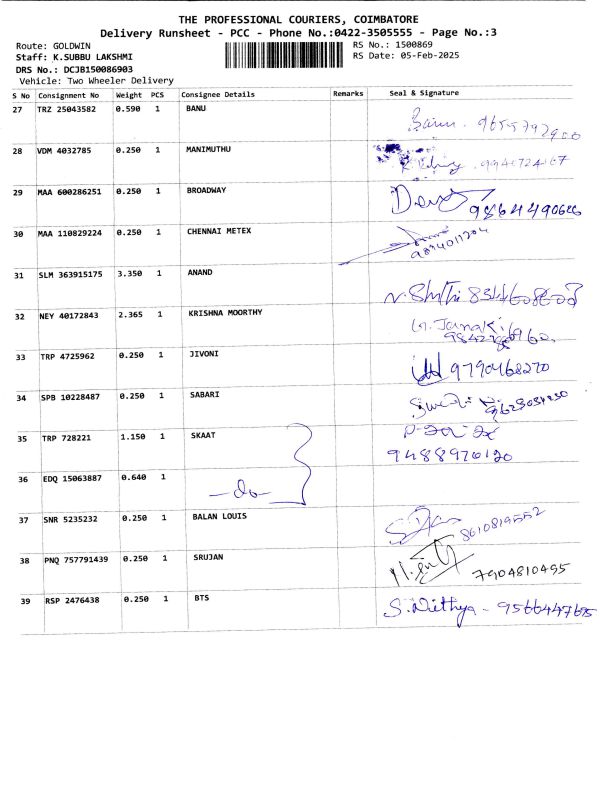 THE PROFESSIONAL COURIERS, COIMBATORE
Delivery Runsheet - PCC - Phone No.:0422-3505555 - Page No.:3
Route: GOLDWIN RS No.: 1500869
Staff: K.SUBBU LAKSHMI RS Date: 05-Feb-2025
DRS No.: DCJB150086903
Vehicle: Two Wheeler Delivery
S No Consignment No Weight PCS Consignee Details Remarks Seal & Signature
27 TRZ 25043582 0.590 1 BANU
28 VDM 4032785 0.250 1 MANIMUTHU
29 MAA 600286251 0.250 1 BROADWAY
30 MAA 110829224 0.250 1 CHENNAI METEX
31 SLM 363915175 3.350 1 ANAND
32 NEY 40172843 2.365 1 KRISHNA MOORTHY
G. Janaki
33 TRP 4725962 0.250 1 JIVONI 9790468270
34 SPB 10228487 0.250 1 SABARI
35 TRP 728221 1.150 1 SKAAT
9488976120
36 EDQ 15063887 0.640 1 -do-
37 SNR 5235232 0.250 1 BALAN LOUIS 8610819552
38 PNQ 757791439 0.250 1 SRUJAN 7904810495
39 RSP 2476438 0.250 1 BTS S. Nithya -